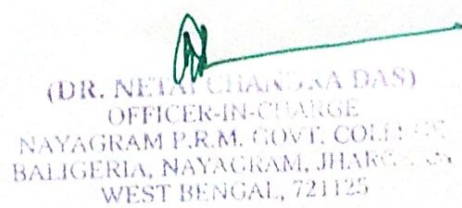 (DR. NETAI CHANDRA DAS)
OFFICER-IN-CHARGE
NAYAGRAM P.R.M. GOVT. COLLEGE
BALIGERIA, NAYAGRAM,
WEST BENGAL, 721125